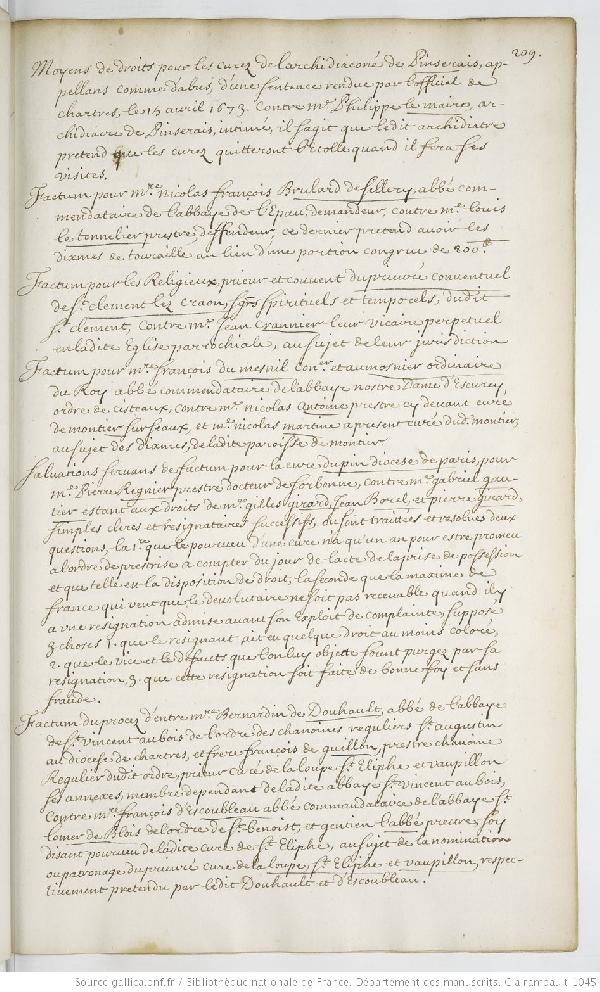 209.
Moyens de droits pour les curez de l'archidiaconé de Pinserais, ap-
pellans comme d'abus, d'une sentence rendue par l'official de
chartres, le 15 avril 1673. Contre mr. Philippe le maire, ar-
chidiacre de Pinserais, intimé, il s'agit que ledit archidiacre
pretend que les curez quitteront l'Etolle quand il fera ses
visites.
Factum pour mre. Nicolas François Brulard de Sillery, abbé com-
mendataire de l'abbaye de l'Epau, demandeur, contre mr. Louis
le tonnelier prestre, deffendeur, ce dernier pretend avoir les
dixmes de touraille au lieu d'une portion congrue de 200lt
Factum pour les Religieux, prieur et couvent du prieuré conventuel
de St. clement lez Craon, sgrs spirituels et temporels, dudit
St. clement, contre mr. Jean Crannier leur vicaire perpetuel
en ladite Eglise parrochiale, au sujet de leur jurisdiction
Factum pour mre François du mesnil Coner. et aumosnier ordinaire
du Roy abbé commendataire de l'abbaye nostre Dame d'Escurey,
ordre de cisteaux, contre mr. nicolas Antoine prestre cy devant curé
de montier sur Seaux, et mr. Nicolas martine a present curé dud. montier,
au sujet des dixmes, de ladite paroisse de montier.
Salvations servans de factum pour la cure du pin diocese de paris, pour
mr. Pierre Regnier prestre docteur de sorbonne, contre mr. gabriel gau-
tier estant aux droits de mrs. gilles girard, Jean Borel, et pierre girard,
simples clercs et resignataires successifs, où sont traittés et resolues deux
questions, la 1re. que le pourveu d'une cure n'a qu'un an pour estre promeu
a l'ordre de prestrise a compter du jour de l'acte de la prise de possession
et que telle est la disposition de droit; la seconde que la maxime de
france qui veut que le devolutaire ne soit pas recevable quand il y
a une resignation admise avant son Exploit de complainte, suppose
3 choses 1. que le resignant ait eu quelque droit au moins coloré,
2. que le vice et le deffauts que l'on luy objecte soient purgez par sa
resignation, 3. que cette resignation soit faite de bonne foy et sans
fraude.
Factum du procez d'entre mre Bernardin de Douhault, abbé de l'abbaye
de St. vincent au bois de l'ordre des chanoines reguliers St. augustin
au diocese de chartres, et frere françois de guillon, prestre chanoine
Regulier dudit ordre, prieur curé de la loupe St. Eliphe et vaupillon
ses annexes, membre dependant de ladite abbaye St. vincent au bois,
Contre mre. François d'Escoubleau abbé commandataire de l'abbaye St.
lomer de Blois de l'ordre de St. benoist, et gentien l'abbé prestre soy
disant pourveu de ladite cure de St. Eliphe, au sujet de la nomination
ou patronage du prieuré cure de la loupe, St. Eliphe et vaupillon, respec-
tivement pretendu par ledit Douhault et d'Escoubleau.
Source gallica.bnf.fr / Bibliothèque nationale de France. Département des manuscrits. Clairambault 1045